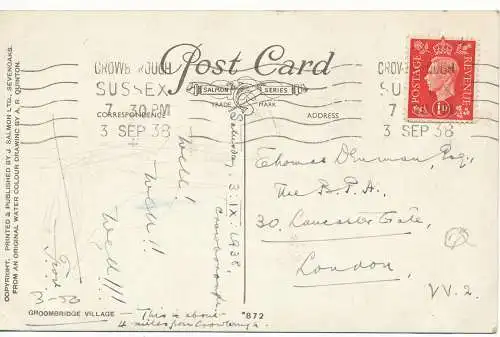 Post Card
SALMON SERIES
TRADE MARK
CORRESPONDENCE
ADDRESS
CROWBOROUGH
SUSSEX
7 30 PM
3 SEP 38
CROWBOROUGH
SUS
7
3 SEP 38
POSTAGE
REVENUE
1D
COPYRIGHT. PRINTED & PUBLISHED BY J. SALMON LTD., SEVENOAKS.
FROM AN ORIGINAL WATER COLOUR DRAWING BY A. R. QUINTON.
Saturday, 3.IX.1938,
Crowborough.
Well!
Well!!
Well!!!
Thomas Esq.,
The B.P.A.,
30, Lancaster Gate,
London.
W. 2.
GROOMBRIDGE VILLAGE
- This is about
4 miles from Crowborough.
*872